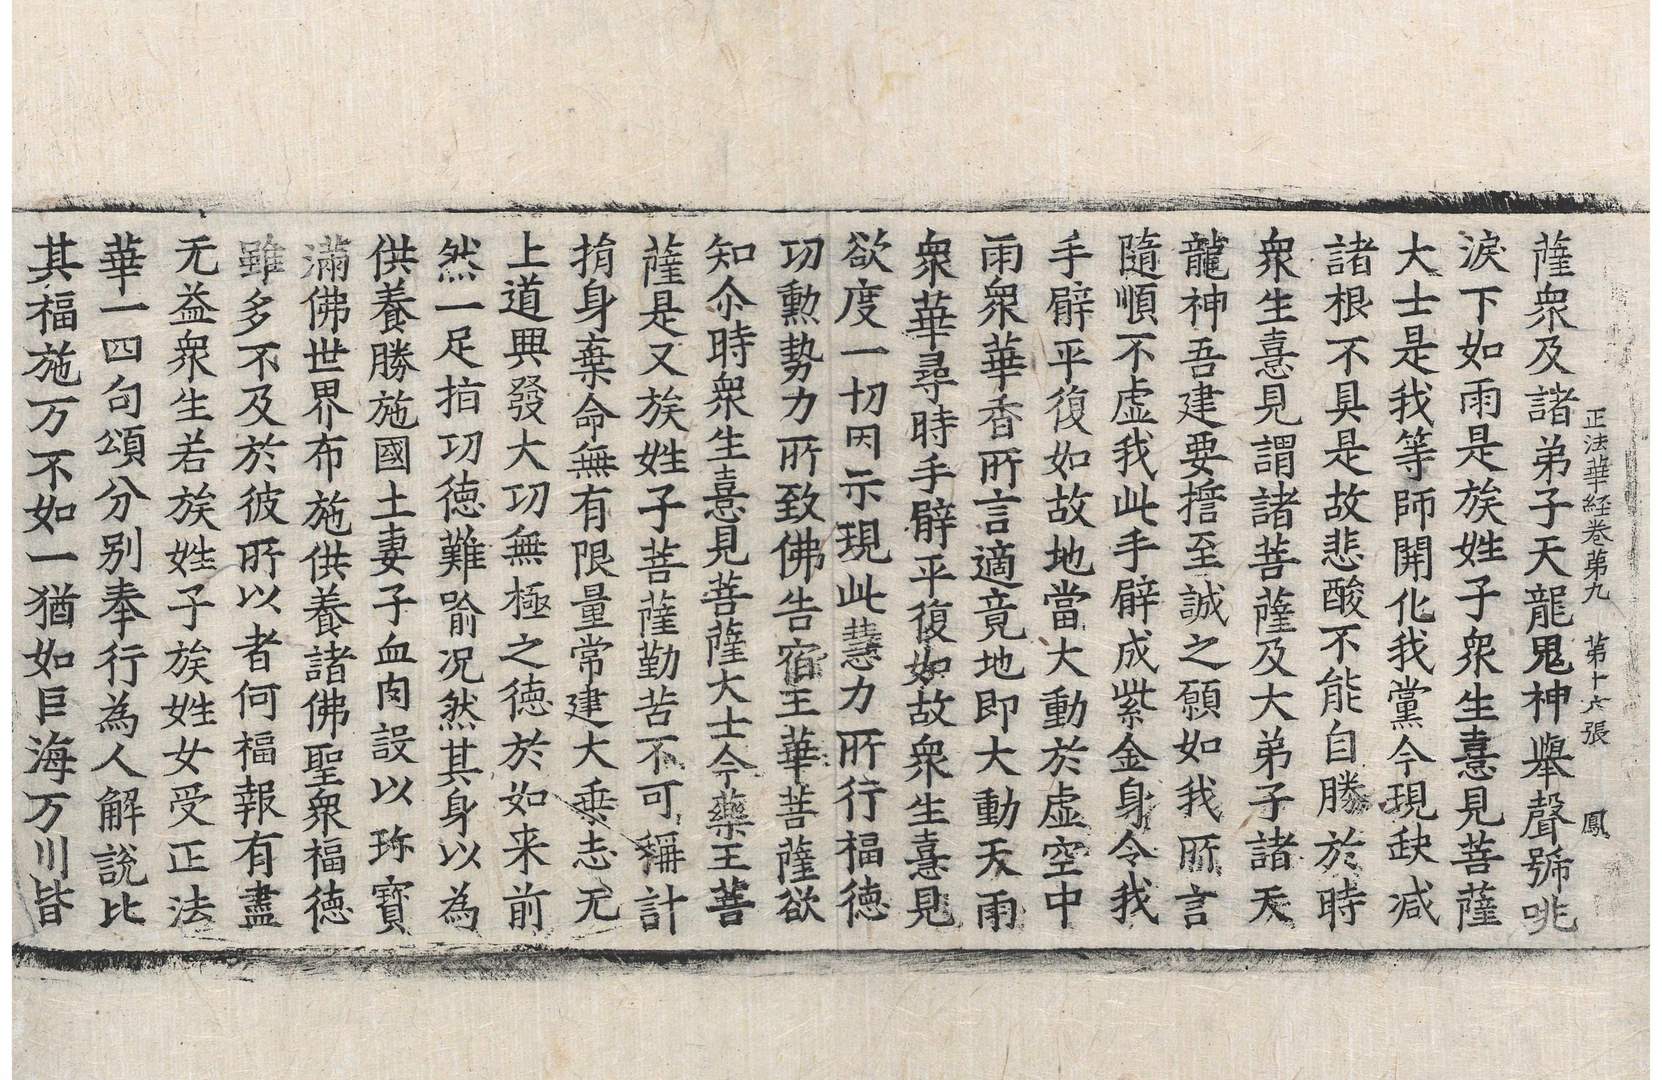 正法華経卷第九　第十六張　鳳
薩衆及諸弟子天龍鬼神舉聲號咷
淚下如雨是族姓子衆生憙見菩薩
大士是我等師開化我黨今現缺减
諸根不具是故悲酸不能自勝於時
衆生憙見謂諸菩薩及大弟子諸天
龍神吾建要誓至誠之願如我所言
隨順不虛我此手臂成紫金身令我
手臂平復如故地當大動於虛空中
雨衆華香所言適竟地即大動天雨
衆華尋時手臂平復如故衆生憙見
欲度一切因示現此慧力所行福德
功勳勢力所致佛告宿王華菩薩欲
知尒時衆生憙見菩薩大士今藥王菩
薩是又族姓子菩薩勤苦不可稱計
捐身棄命無有限量常建大乗志无
上道興發大功無極之德於如来前
然一足指功德難喻况然其身以為
供養勝施國土妻子血肉設以珎寶
滿佛世界布施供養諸佛聖衆福德
雖多不及於彼所以者何福報有盡
无益衆生若族姓子族姓女受正法
華一四句頌分别奉行為人解說比
其福施万不如一猶如巨海万川皆